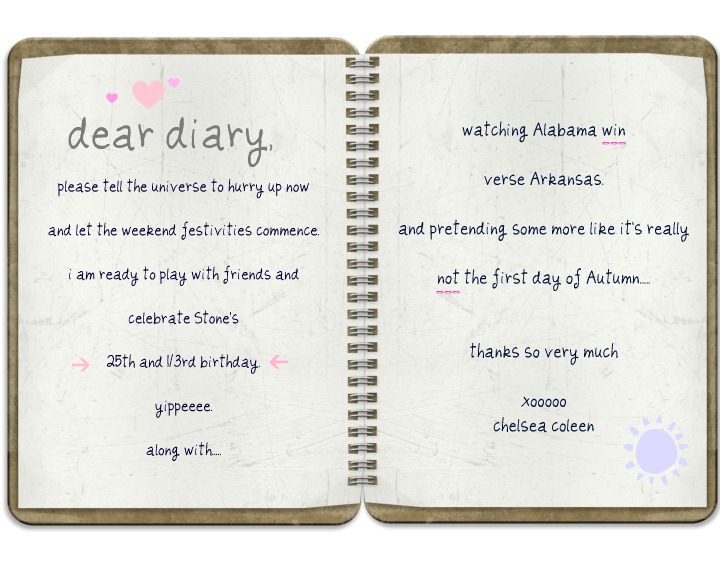 dear diary,
please tell the universe to hurry up now
and let the weekend festivities commence.
i am ready to play with friends and
celebrate Stone's
25th and 1/3rd birthday.
yippeeee.
along with.....
watching Alabama win
verse Arkansas.
and pretending some more like it's really
not the first day of Autumn.....
thanks so very much
xooooo
chelsea coleen